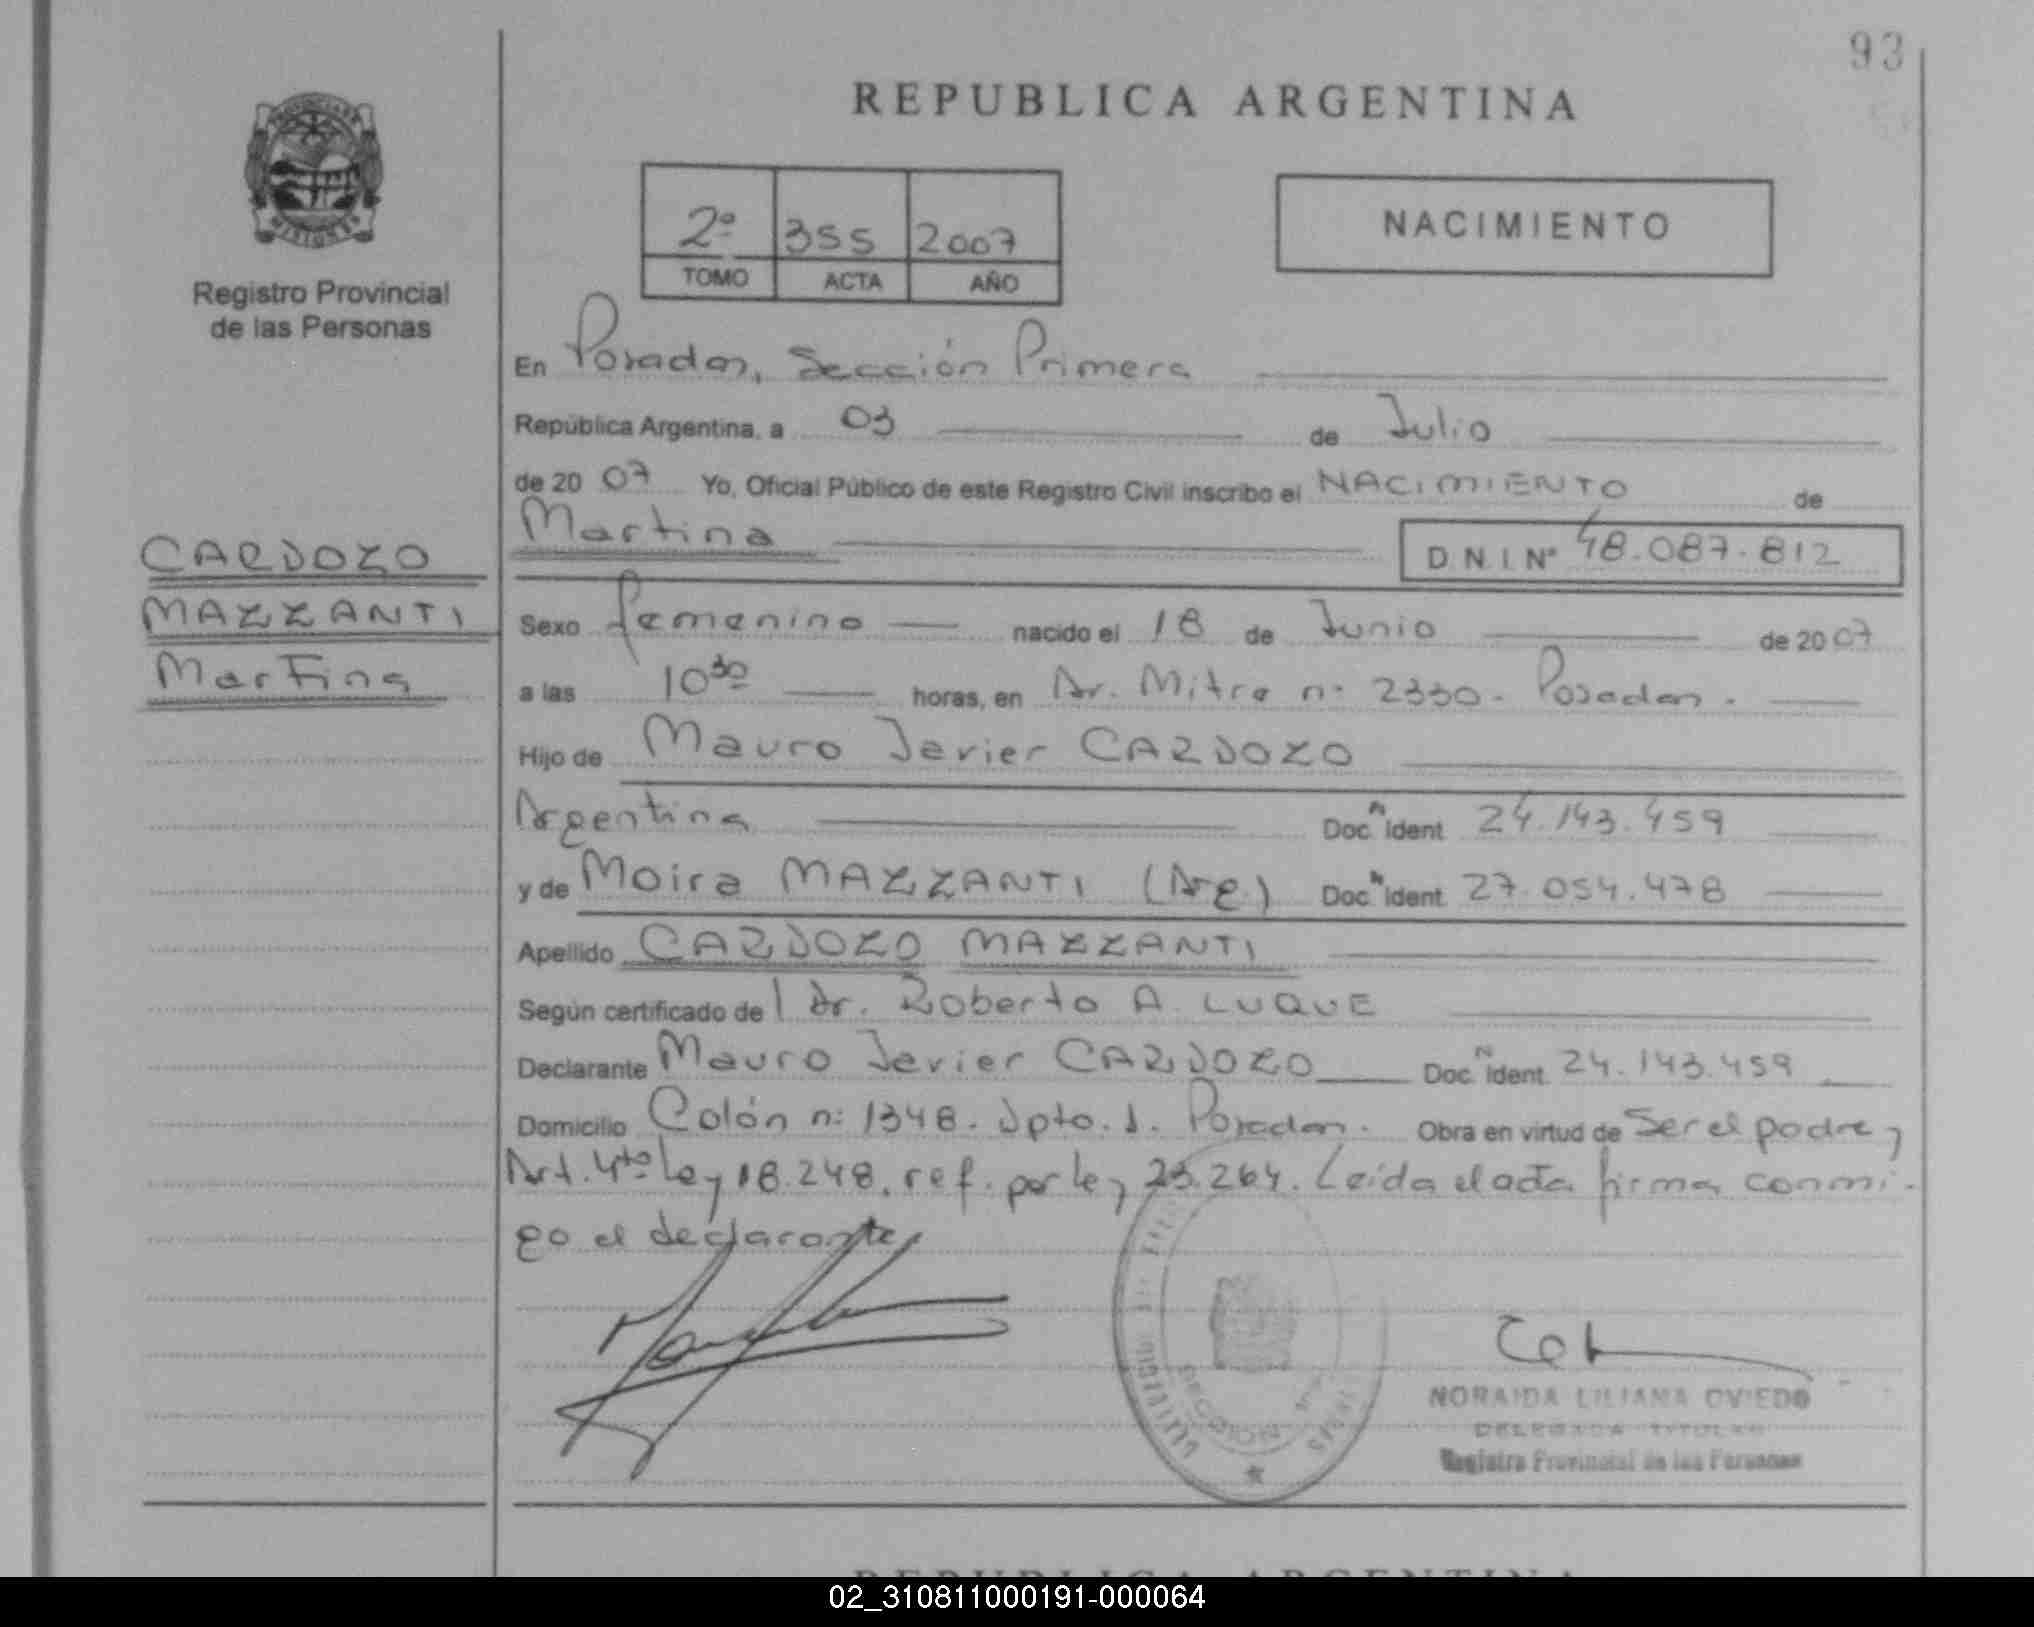 93
REPUBLICA ARGENTINA
PROVINCIA DE
MISIONES
Registro Provincial
de las Personas
2º 355 2007
TOMO ACTA AÑO
NACIMIENTO
En Posadas, Sección Primera
República Argentina, a 03 de Julio
de 20 07 Yo, Oficial Público de este Registro Civil inscribo el NACIMIENTO de
Martina
D.N.I. Nº 48.087.812
CARDOZO
MAZZANTI
Martina
Sexo femenino nacido el 18 de Junio de 20 07
a las 10 30 horas, en Av. Mitre nº 2330. Posadas.
Hijo de Mauro Javier CARDOZO
Argentina Doc. N Ident 24.143.459
y de Moira MAZZANTI (Arg.) Doc. N Ident. 27.054.478
Apellido CARDOZO MAZZANTI
Según certificado de l Dr. Roberto A. LUQUE
Declarante Mauro Javier CARDOZO Doc. N Ident. 24.143.459
Domicilio Colón nº 1348. Dpto. 1. Posadas. Obra en virtud de Ser el padre y
Art. 4to Ley 18.248, ref. por ley 23.264. Leída el acta firma conmi-
go el declarante
NORAIDA LILIANA OVIEDO
DELEGADA TITULAR
Registro Provincial de las Personas
REPUBLICA ARGENTINA
02_310811000191-000064